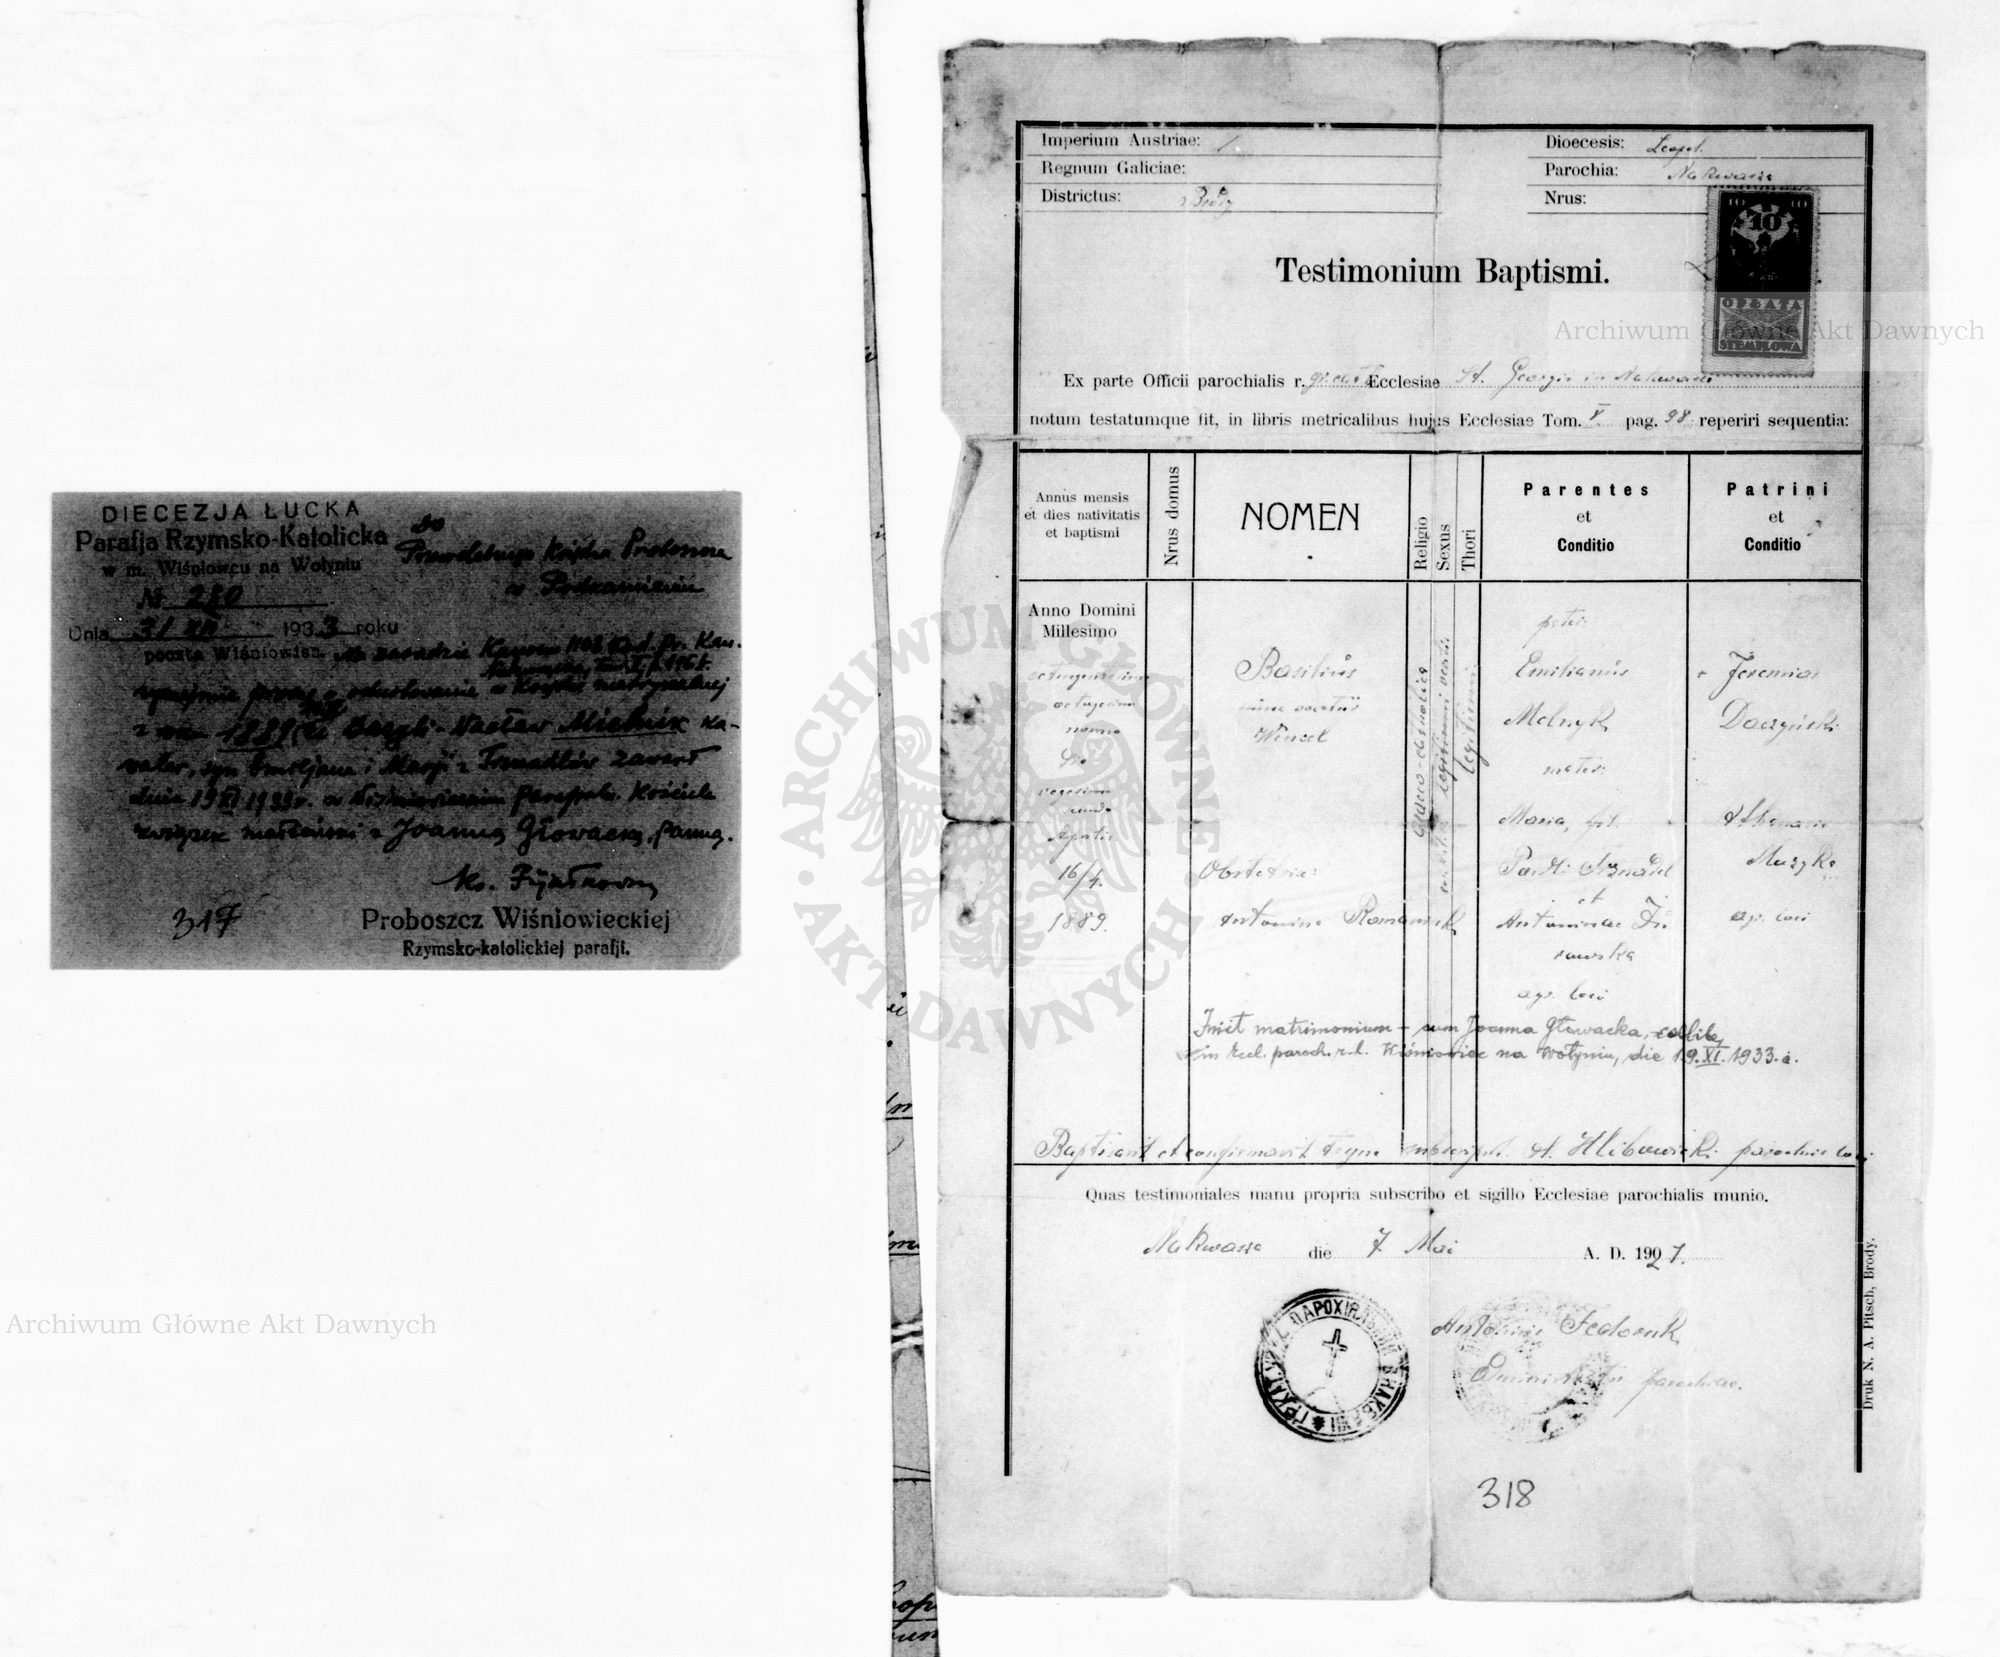 DIECEZJA ŁUCKA
Parafja Rzymsko-Katolicka
w m. Wiśniowcu na Wołyniu
Nr 280
Dnia 31 XII 1933 roku
poczta Wiśniowiec.
Do
Przewielebnego Księdza Proboszcza
w Podkamieniu
Na zasadzie Kanonu 1103
z roku 1889 Bazyli-Wacław Mielnik ka-
waler, syn Emiljana i Marji z Trznadlów zawarł
dnia 19 XI 1933 r. w Wiśniowieckim parafjal. Kościele
związek małżeński z Joanną Głowacką, panną.
ks. Fijałkowski
Proboszcz Wiśniowieckiej
Rzymsko-katolickiej parafji.
317
Imperium Austriae:
Regnum Galiciae:
Districtus: Brody
Dioecesis: Leopol.
Parochia: Nakwasza
Nrus:
10 10
10
OPŁATA
STEMPLOWA
Testimonium Baptismi.
Ex parte Officii parochialis r. gr. cath. Ecclesiae St. Georgii in Nakwasza
notum testatumque fit, in libris metricalibus hujus Ecclesiae Tom. V. pag. 98 reperiri sequentia:
Annus mensis
et dies nativitatis
et baptismi
Nrus domus
NOMEN
Religio
Sexus
Thori
Parentes
et
Conditio
Patrini
et
Conditio
Anno Domini
Millesimo
octingentesimo
octogesimo
nono
Aprilis
16/4.
1889.
Basilius
Wencel
Obstetrix:
Antonina Romaniuk
graeco-catholica
legitimi
pater:
Emilianus
Melnyk
mater:
Maria, fil.
Pauli Trznadel
et
Antoninae
agr. loci
Jeremias
Daczyński
Athanasi
Muzyka
agr. loci
Iniit matrimonium cum Joanna Głowacka, coelibe,
in eccl. paroch. r. l. Wiśniowiec na Wołyniu, die 19. XI. 1933. a.
Baptisavit et confirmavit A. Hlibowicki parochus loci
Quas testimoniales manu propria subscribo et sigillo Ecclesiae parochialis munio.
Nakwasza die 7 Mai A. D. 1921.
Antonius Fedoruk
Administrator parochiae.
318
Druk N. A. Pitsch, Brody.
Archiwum Główne Akt Dawnych
Archiwum Główne Akt Dawnych
ARCHIWUM GŁÓWNE AKT DAWNYCH